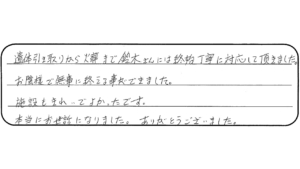 遺体引き取りから火葬まで鈴木さんには終始丁寧に対応して頂きました。
お陰様で無事に終える事ができました。
施設もきれいでよかったです。
本当にお世話になりました。ありがとうございました。